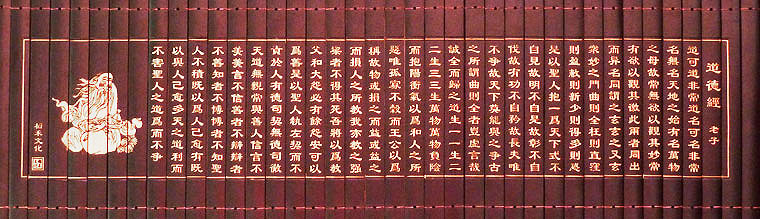 道德經 老子
道可道非常道名可名非常
名無名天地之始有名萬物
之母故常無欲以觀其妙常
有欲以觀其徼此兩者同出
而異名同謂之玄玄之又玄
衆妙之門曲則全枉則直窪
則盈敝則新少則得多則惑
是以聖人抱一爲天下式不
自見故明不自是故彰不自
伐故有功不自矜故長夫唯
不爭故天下莫能與之爭古
之所謂曲則全者豈虛言哉
誠全而歸之道生一一生二
二生三三生萬物萬物負陰
而抱陽衝氣以爲和人之所
惡唯孤寡不穀而王公以爲
稱故物或損之而益或益之
而損人之所教我亦教之强
梁者不得其死吾將以爲教
父和大怨必有餘怨安可以
爲善是以聖人執左契而不
責於人有德司契無德司徹
天道無親常與善人信言不
美美言不信善者不辯辯者
不善知者不博博者不知聖
人不積既以爲人己愈有既
以與人己愈多天之道利而
不害聖人之道爲而不爭
文化